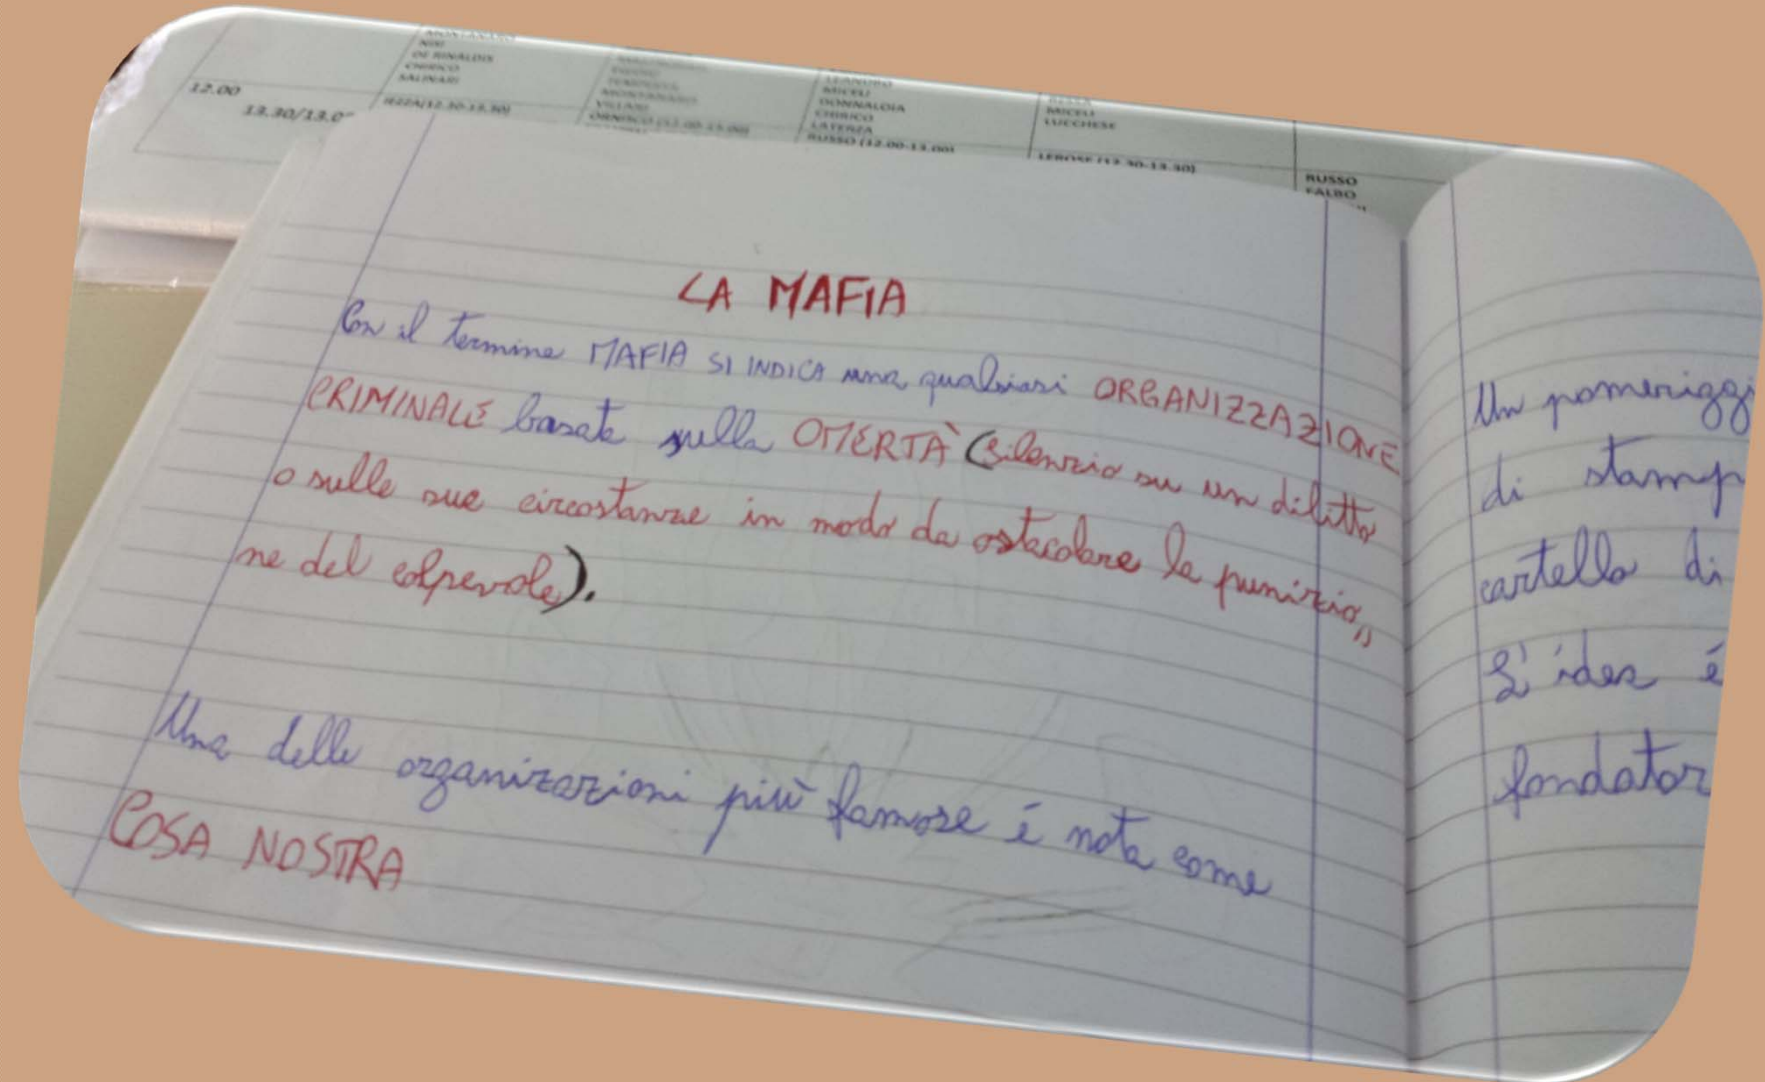 NISI
DE RINALDIS
CHIRICO
SALINARI
12.00
13.30/13.0
MONTANARO
VILLARI
LEANDRO
MICELI
DONNALOIA
CHIRICO
LATERZA
RUSSO (12.00-13.00)
MICELI
LUCCHESE
LEROSE (12.30-13.30)
RUSSO
FALBO
LA MAFIA
Con il termine MAFIA SI INDICA una qualsiasi ORGANIZZAZIONE
CRIMINALE basata sulla OMERTÀ (silenzio su un dilitto
o sulle sue circostanze in modo da ostacolare la punizio„
ne del colpevole).
Una delle organizazioni più famose è nota come
COSA NOSTRA
Un pomeriggi
di stamp
cartello di
L'idea è
fondator